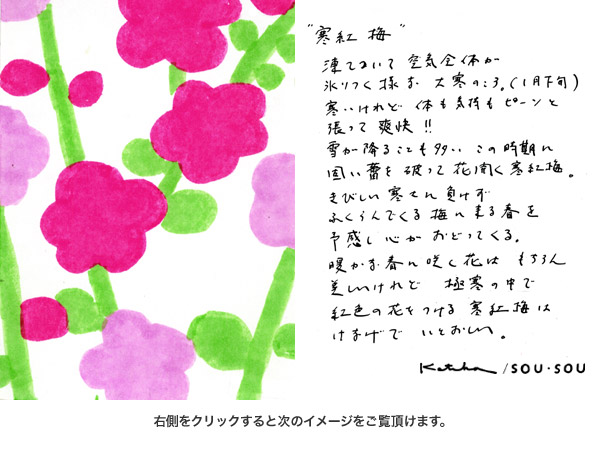 "寒紅梅"
凍てついて 空気全体が
氷りつく様な 大寒のころ。(1月下旬)
寒いけれど 体も気持もピーンと
張って爽快!!
雪が降ることも多い この時期に
固い蕾を破って花開く寒紅梅。
きびしい寒さに負けず
ふくらんでくる梅に来る春を
予感し心がおどってくる。
暖かな春に咲く花は もちろん
美しいけれど 極寒の中で
紅色の花をつける 寒紅梅は
けなげで いとおしい。
Katsuji / SOU・SOU
右側をクリックすると次のイメージをご覧頂けます。